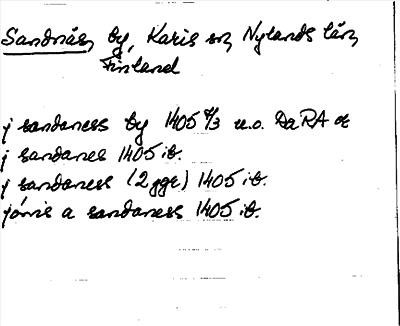 Sandnäs, by, Karis sn, Nylands län,
Finland
j sandaness by 1405 4/3 u.o. DaRA or
j sandanes 1405 ib.
j sandaness (2 ggr) 1405 ib.
jónis a sandaness 1405 ib.